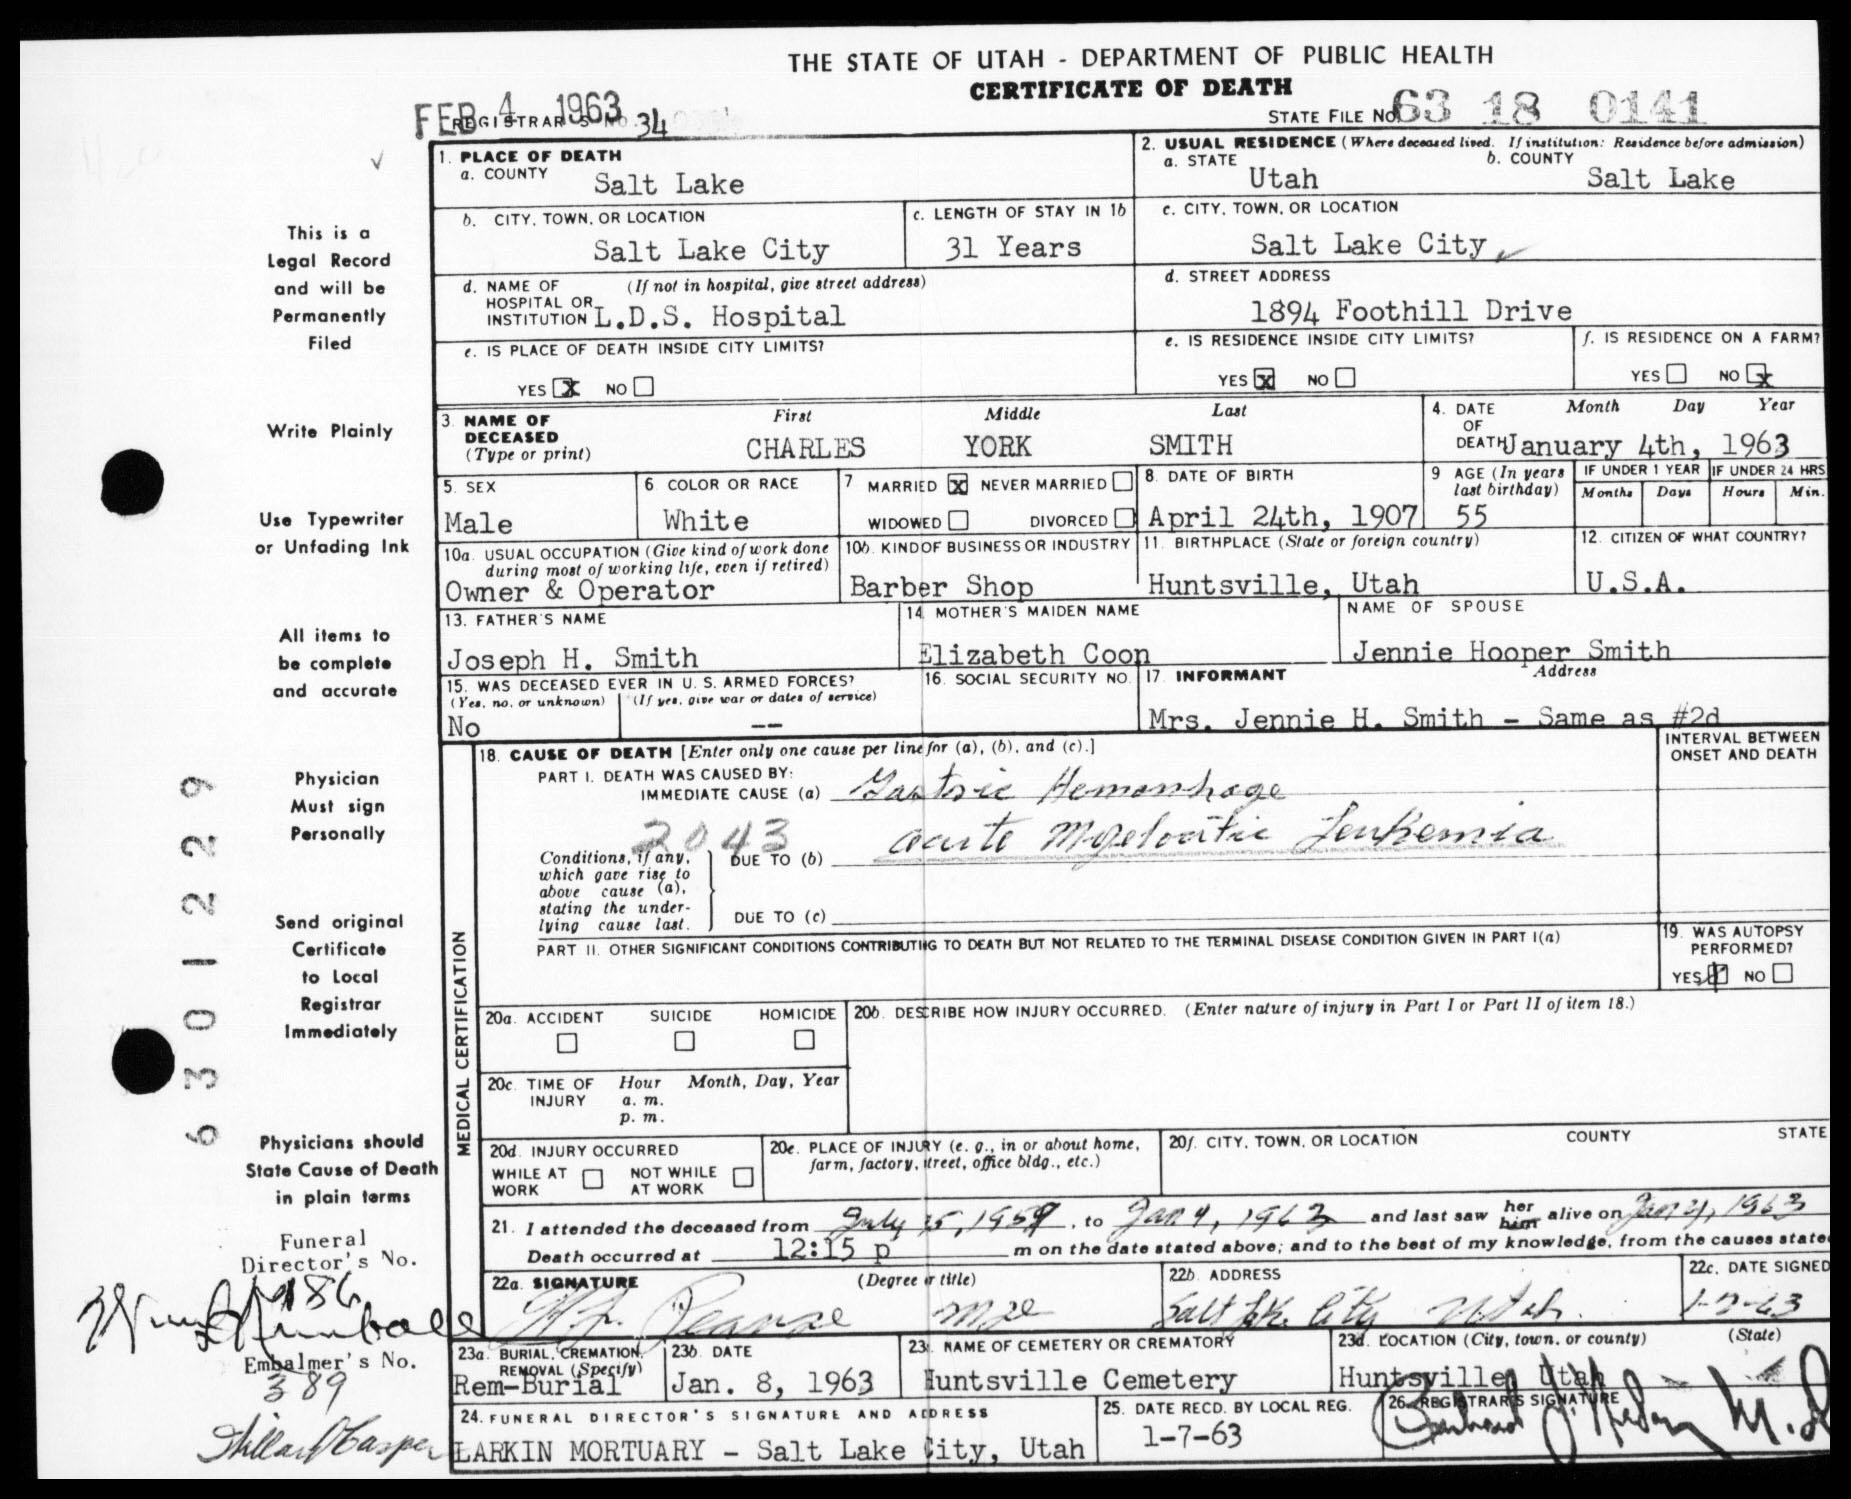 THE STATE OF UTAH - DEPARTMENT OF PUBLIC HEALTH
CERTIFICATE OF DEATH
FEB 4 1963
REGISTRAR'S NO. 34
STATE FILE NO. 63 18 0141
1. PLACE OF DEATH
a. COUNTY Salt Lake
2. USUAL RESIDENCE (Where deceased lived. If institution: Residence before admission)
a. STATE Utah b. COUNTY Salt Lake
b. CITY, TOWN, OR LOCATION Salt Lake City
c. LENGTH OF STAY IN 1b 31 Years
c. CITY, TOWN, OR LOCATION Salt Lake City
d. NAME OF HOSPITAL OR INSTITUTION (If not in hospital, give street address)
L.D.S. Hospital
d. STREET ADDRESS
1894 Foothill Drive
e. IS PLACE OF DEATH INSIDE CITY LIMITS?
YES X NO
e. IS RESIDENCE INSIDE CITY LIMITS?
YES X NO
f. IS RESIDENCE ON A FARM?
YES NO X
3. NAME OF DECEASED (Type or print)
First Middle Last
CHARLES YORK SMITH
4. DATE OF DEATH Month Day Year
January 4th, 1963
5. SEX
Male
6. COLOR OR RACE
White
7. MARRIED X NEVER MARRIED
WIDOWED DIVORCED
8. DATE OF BIRTH
April 24th, 1907
9 AGE (In years last birthday)
55
IF UNDER 1 YEAR
Months Days
IF UNDER 24 HRS
Hours Min.
10a. USUAL OCCUPATION (Give kind of work done during most of working life, even if retired)
Owner & Operator
10b. KIND OF BUSINESS OR INDUSTRY
Barber Shop
11. BIRTHPLACE (State or foreign country)
Huntsville, Utah
12. CITIZEN OF WHAT COUNTRY?
U.S.A.
13. FATHER'S NAME
Joseph H. Smith
14. MOTHER'S MAIDEN NAME
Elizabeth Coon
NAME OF SPOUSE
Jennie Hooper Smith
15. WAS DECEASED EVER IN U. S. ARMED FORCES?
(Yes, no, or unknown) (If yes, give war or dates of service)
No --
16. SOCIAL SECURITY NO.
17. INFORMANT Address
Mrs. Jennie H. Smith - Same as #2d
18. CAUSE OF DEATH [Enter only one cause per line for (a), (b), and (c).]
INTERVAL BETWEEN ONSET AND DEATH
PART I. DEATH WAS CAUSED BY:
IMMEDIATE CAUSE (a) Gastric Hemorrhage
2043
Conditions, if any, which gave rise to above cause (a), stating the underlying cause last.
DUE TO (b) acute Myelocitic Leukemia
DUE TO (c)
PART II. OTHER SIGNIFICANT CONDITIONS CONTRIBUTING TO DEATH BUT NOT RELATED TO THE TERMINAL DISEASE CONDITION GIVEN IN PART I(a)
19. WAS AUTOPSY PERFORMED?
YES NO
MEDICAL CERTIFICATION
20a. ACCIDENT SUICIDE HOMICIDE
20b. DESCRIBE HOW INJURY OCCURRED. (Enter nature of injury in Part I or Part II of item 18.)
20c. TIME OF INJURY Hour Month, Day, Year
a. m.
p. m.
20d. INJURY OCCURRED
WHILE AT WORK NOT WHILE AT WORK
20e. PLACE OF INJURY (e. g., in or about home, farm, factory, street, office bldg., etc.)
20f. CITY, TOWN, OR LOCATION COUNTY STATE
21. I attended the deceased from July 15, 1959, to Jan 4, 1963 and last saw her him alive on Jan 4, 1963
Death occurred at 12:15 p m on the date stated above; and to the best of my knowledge, from the causes state
22a. SIGNATURE (Degree or title)
22b. ADDRESS
Salt Lk. City Utah.
22c. DATE SIGNED
1-7-63
23a. BURIAL, CREMATION, REMOVAL (Specify)
Rem-Burial
23b. DATE
Jan. 8, 1963
23c. NAME OF CEMETERY OR CREMATORY
Huntsville Cemetery
23d. LOCATION (City, town, or county) (State)
Huntsville, Utah
24. FUNERAL DIRECTOR'S SIGNATURE AND ADDRESS
LARKIN MORTUARY - Salt Lake City, Utah
25. DATE RECD. BY LOCAL REG.
1-7-63
26. REGISTRAR'S SIGNATURE
This is a
Legal Record
and will be
Permanently
Filed
Write Plainly
Use Typewriter
or Unfading Ink
All items to
be complete
and accurate
Physician
Must sign
Personally
Send original
Certificate
to Local
Registrar
Immediately
Physicians should
State Cause of Death
in plain terms
Funeral
Director's No.
186
Embalmer's No.
389
6301229